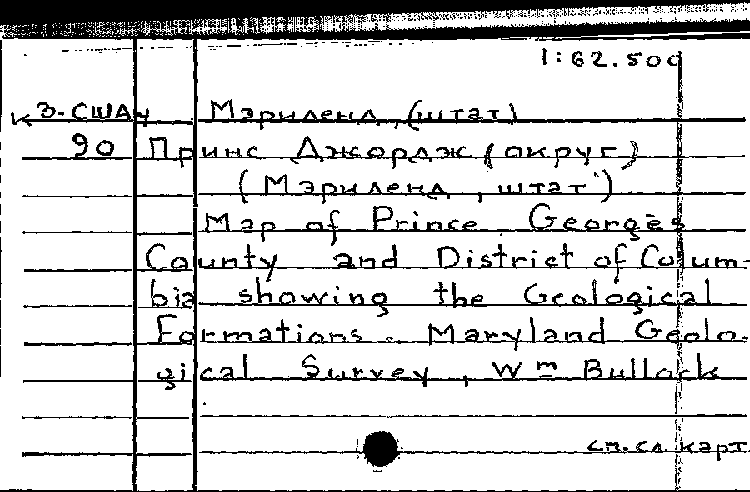 1:62.500
К 3-США4 Мэриленд (штат)
90 Принс Джордж (округ)
(Мэриленд, штат)
Map of Prince Georges
County and District of Colum-
bia showing the Geological
Formations. Maryland Geolo-
gical Survey, Wm Bullock
см. сл. карт